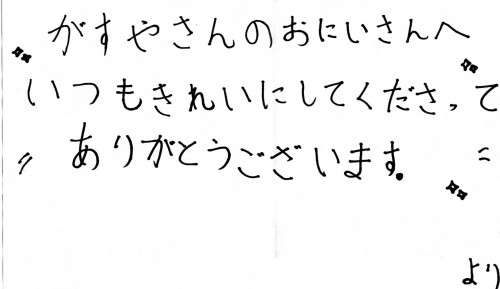 がすやさんのおにいさんへ
いつもきれいにしてくださって
ありがとうございます。
より